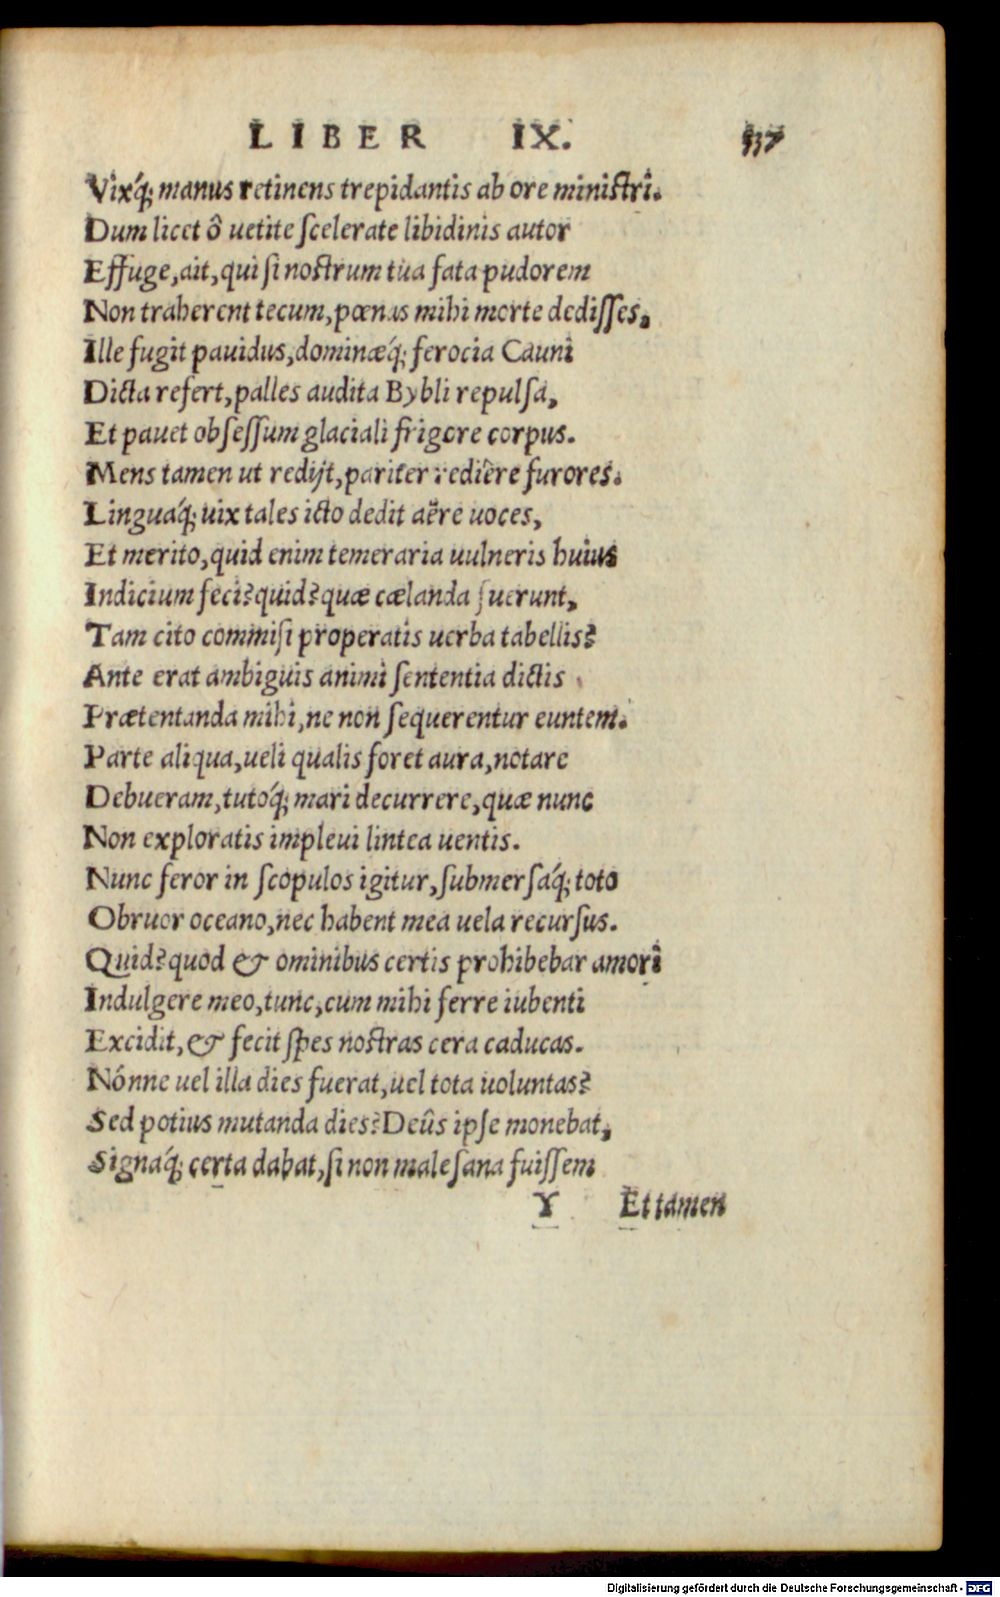 LIBER IX. 337
Vixq́; manus retinens trepidantis ab ore ministri.
Dum licet ô uetite scelerate libidinis autor
Effuge, ait, qui si nostrum tua fata pudorem
Non traherent tecum, pœnas mihi morte dedisses,
Ille fugit pauidus, dominæq́; ferocia Cauni
Dicta refert, palles audita Bybli repulsa,
Et pauet obsessum glaciali frigore corpus.
Mens tamen ut redijt, pariter rediêre furores.
Linguaq́; uix tales icto dedit aëre uoces,
Et merito, quid enim temeraria uulneris huius
Indicium feci? quid? quæ cælanda fuerunt,
Tam cito commisi properatis uerba tabellis?
Ante erat ambiguis animi sententia dictis
Prætentanda mihi, ne non sequerentur euntem.
Parte aliqua, ueli qualis foret aura, notare
Debueram, tutoq́; mari decurrere, quæ nunc
Non exploratis impleui lintea uentis.
Nunc feror in scopulos igitur, submersaq́; toto
Obruor oceano, nec habent mea uela recursus.
Quid? quod & ominibus certis prohibebar amori
Indulgere meo, tunc, cum mihi ferre iubenti
Excidit, & fecit spes nostras cera caducas.
Nónne uel illa dies fuerat, uel tota uoluntas?
Sed potius mutanda dies? Deûs ipse monebat,
Signaq́; certa dabat, si non male sana fuissem
Y Et tamen
Digitalisierung gefördert durch die Deutsche Forschungsgemeinschaft - DFG